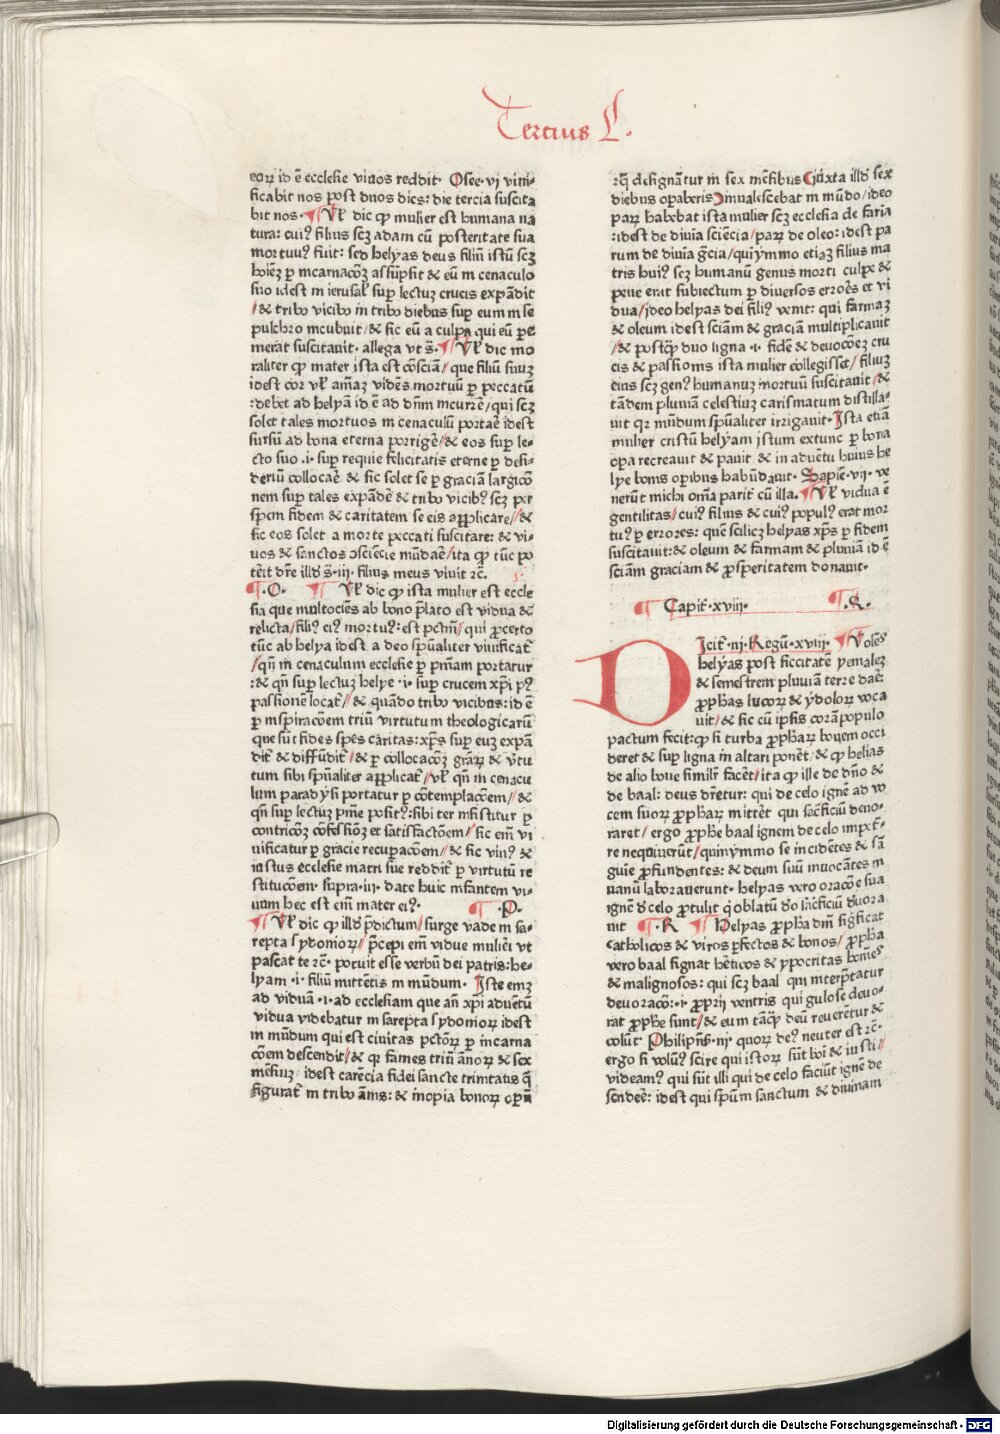 Tercius L.
eoꝝ id ē ecclesie viuos reddit· Osee·vi viui⸗
ficabit nos post duos dies: die tercia suscita
bit nos· ¶ Vl̛ dic ꝙ mulier est humana na
tura: cui⁹ filius scꝫ adam cū posteritate sua
mortuu⁹ fuit: sed helyas deus filiū istū scꝫ
hoīeꝫ p incarnacōꝫ assūpsit & eū in cenaculo
suo idest in ierusal̛ sup̄ lectuꝫ crucis expādit
/& tribꝰ vicibꝰ in tribꝰ diebus sup̄ eum in se
pulchro incubuit/& sic eū a culpa qui eū pe
merat suscitauit· allega vt s̄· ¶ Vl̛ dic mo
raliter ꝙ mater ista est cōsciā/ que filiū suuꝫ
idest cor vl̛ amāꝫ vidēs mortuū p peccatū
:debet ad helyā id ē ad dn̄m currē/qui scꝫ
solet tales mortuos in cenaculū portaē idest
sursū ad bona eterna porrigē/& eos sup̄ le⸗
cto suo ·i· sup̄ requie felicitatis eterne p desi⸗
deriū collocaē & sic solet se p graciā largicō
nem sup̄ tales expādē & tribꝰ vicib⁹ scꝫ per
spem fidem & caritatem se eis applicare//&
sic eos solet a morte peccati suscitare: & vi⸗
uos & sanctos osciēcie mūdaē/ita ꝙ tūc po
tēit dr̄e illd s̄·iii· filius meus viuit ⁊c̄·
¶·O· ¶ Vl̛ dic ꝙ ista mulier est eccle
sia que multociēs ab bono p̄lato est vidua &
relicta/fili⁹ ei⁹ mortu⁹: est pctm̄/ qui ꝓcerto
tūc ab helya idest a deo spūaliter viuificat̄
/qn̄ in cenaculum ecclesie p pniam portatur
:& qn̄ sup̄ lectuꝫ helye ·i· sup̄ crucem xp̄i p⁹
passionē locat̄// & quādo tribꝰ vicibus: id ē
p inspiracōem triū virtutum theologicarū
que sūt fides spēs caritas: xp̄s sup̄ euꝫ expā
dit̄ & diffūdit̄/& p collocacōꝫ graꝝ & v̄tu
tum sibi spūaliter applicat̄/vl̛ qn̄ in cenacu
lum paradysi portatur p cōtemplacōem//&
qn̄ sup̄ lectuꝫ pnie posit⁹: sibi ter insistitur p
contricōꝫ cōfessiōꝫ et satisfactōem/sic em̄ vi
uificatur p gracie recuꝑacōem//& sic viu⁹ &
iustus ecclesie matri sue reddit̄ p virtutū re
stitucōem· supra·iii· date huic infantem vi⸗
uum hec est em̄ mater ei⁹· ¶·P·
¶ Vl̛ dic ꝙ illd p̄dictum/surge vade in sa⸗
repta sydonioꝝ// p̄cepi em̄ vidue mulieri vt
pascat te ⁊c̄· potuit esse verbū dei patris: he⸗
lyam ·i· filiū mittētis in mūdum· Iste emꝫ
ad viduā ·i· ad ecclesiam que an̄ xp̄i aduētū
vidua videbatur in sarepta sydonioꝝ idest
in mūdum qui est ciuitas pctōꝝ p incarna
cōem descendit/& qꝛ fames triū ānoꝝ & sex
mēsiuꝫ/ idest carēcia fidei sancte trinitatis q̄
figurat̄ in tribꝰ ānis: & inopia bonoꝝ opn̄
:q̄ designātur in sex mēsibus (iuxta illd sex
diebus opaberis) inualescebat in mūdo/ideo
paꝝ habebat ista mulier scꝫ ecclesia de fariā
:idest de diuīa sciēcia/paꝝ de oleo: idest pa
rum de diuīa gr̄cia/quiymmo etiaꝫ filius ma
tris hui⁹ scꝫ humanū genus morti culpe &
pene erat subiectum p diuersos errōes et vi
dua/ideo helyas dei fili⁹ venit: qui farinaꝫ
& oleum idest sciām & graciā multiplicauit
/& postq̄ duo ligna ·i· fidē & deuocōeꝫ cru
cis & passionis ista mulier collegisset/ filiuꝫ
eius scꝫ gen⁹ humanuꝫ mortuū suscitauit/&
tādem pluuiā celestiuꝫ carismatum distilla⸗
uit qꝛ mūdum spūaliter irrigauit· Ista etiā
mulier cristū helyam istum extunc p bona
oꝑa recreauit & pauit & in aduētu huius he
lye bonis oꝑibus habūdauit· Sapiē·vii· ve
nerūt michi omīa parit̄ cū illa· ¶ Vl̛ vidua ē
gentilitas/cui⁹ filius & cui⁹ popul⁹ erat mor
tu⁹ p errores: quē scilicꝫ helyas xp̄s p fidem
suscitauit: & oleum & farinam & pluuiā id ē
sciām graciam & ꝓsperitatem donauit·
¶ Capit̄·xviii· ¶·Q·
DIcit̄·iij·Regū·xviii· ¶ Volēs
helyas post siccitatē yemaleꝫ
& semestrem pluuiā terre daē
ꝓphas lucoꝝ & ydoloꝝ voca
uit/& sic cū ipsis corā populo
pactum fecit: ꝙ si turba ꝓphaꝝ bouem occi
deret & sup̄ ligna in altari ponēt/& ꝙ helias
de alio boue simil̄r facēt/ita ꝙ ille de dn̄o &
de baal: deus dr̄etur: qui de celo ignē ad vo
cem suoꝝ ꝓphaꝝ mittēt qui sac̄ficiū deuo⸗
raret/ ergo ꝓphe baal ignem de celo impet̄⸗
re nequiuerūt/quinymmo se incidētes & sā
guie ꝓfundentes: & deum suū inuocātes in
uanū laborauerunt· helyas vero oracōe sua
ignē d̄ celo ꝓtulit q̄ oblatū d̄o sac̄ficiū d̄uora
uit ¶·R ¶ Helyas ꝓpha dn̄i significat
catholicos & viros ꝑfectos & bonos/ ꝓpha
vero baal signat hēticos & ypocritas hoīes
& malignosos: qui scꝫ baal qui interp̄tatur
deuoracō: ·i· ꝓprij ventris qui gulose deuo⸗
rat ꝓphe sunt/& eum tāꝙ deū reuerētur &
colūt· Philipn̄s·iij· quoꝝ de⁹ venter est ⁊c̄·
ergo si volu⁹ scire qui istoꝝ sūt boī & iusti//
videam⁹ qui sūt illi qui de celo faciūt ignē de
scendeē: idest qui spūm sanctum & diuinam
Digitalisierung gefördert durch die Deutsche Forschungsgemeinschaft - DFG